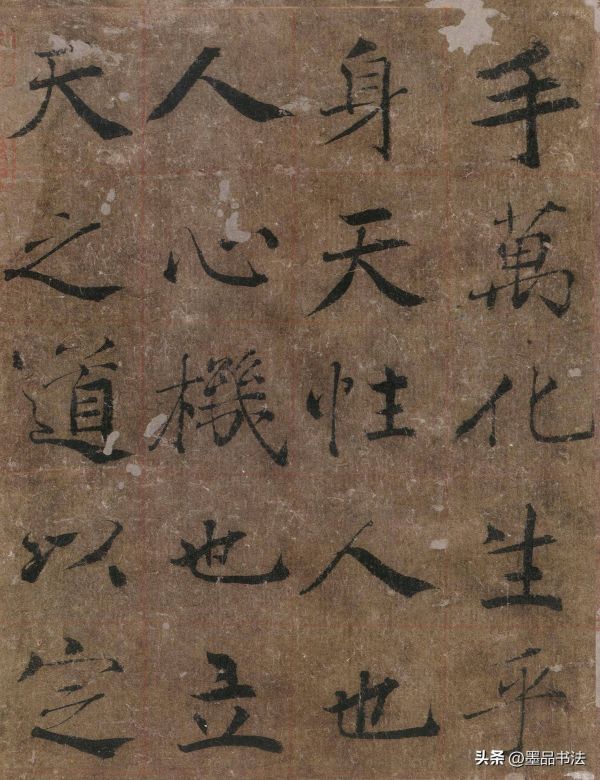 手萬化生乎
身天性人也
人心機也立
天之道以定
头条@墨品书法